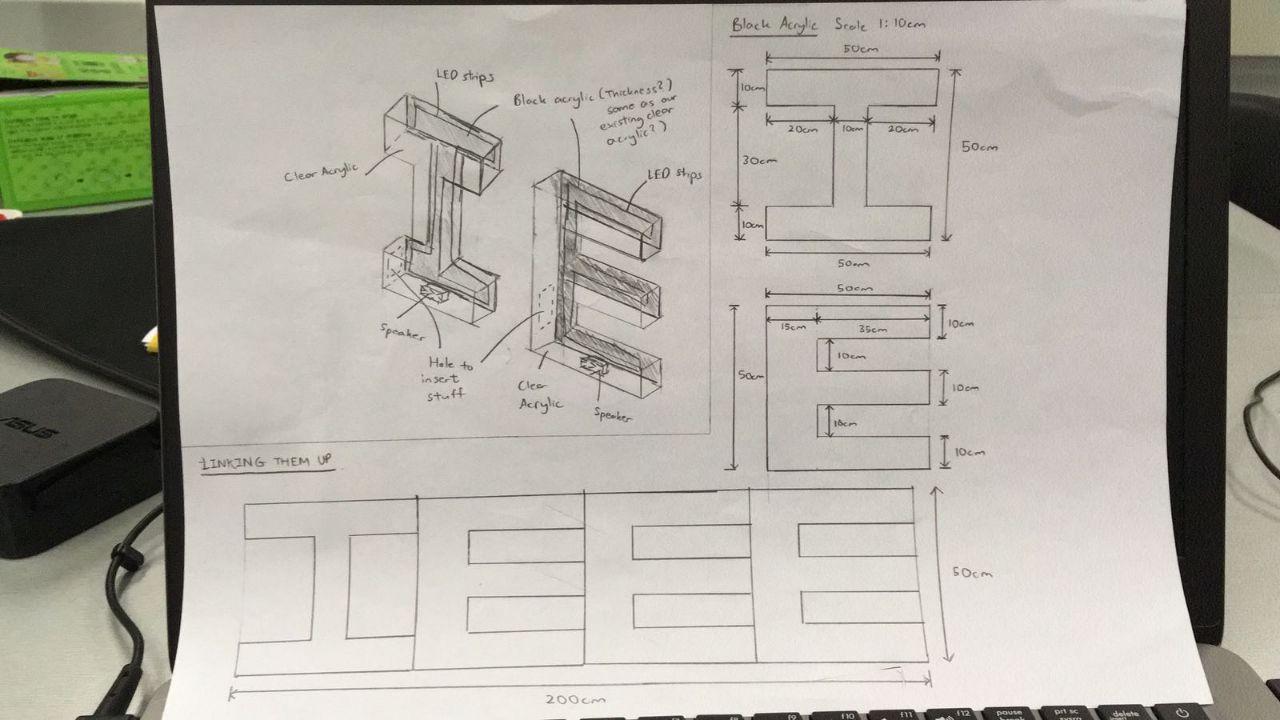 LED strips
Black acrylic (Thickness?)
same as our
existing clear
acrylic?)
Clear Acrylic
LED strips
Speaker
Hole to
insert
stuff
Clear
Acrylic
Speaker
Black Acrylic Scale 1:10cm
50cm
10cm
20cm 10cm 20cm
30cm
50cm
10cm
50cm
50cm
15cm 35cm
10cm
10cm
50cm
10cm
10cm
10cm
LINKING THEM UP
IEEE
50cm
200cm
ASUS
f8
f9
f10
f11
f12
pause
break
prt sc
sysrq
delete
insert